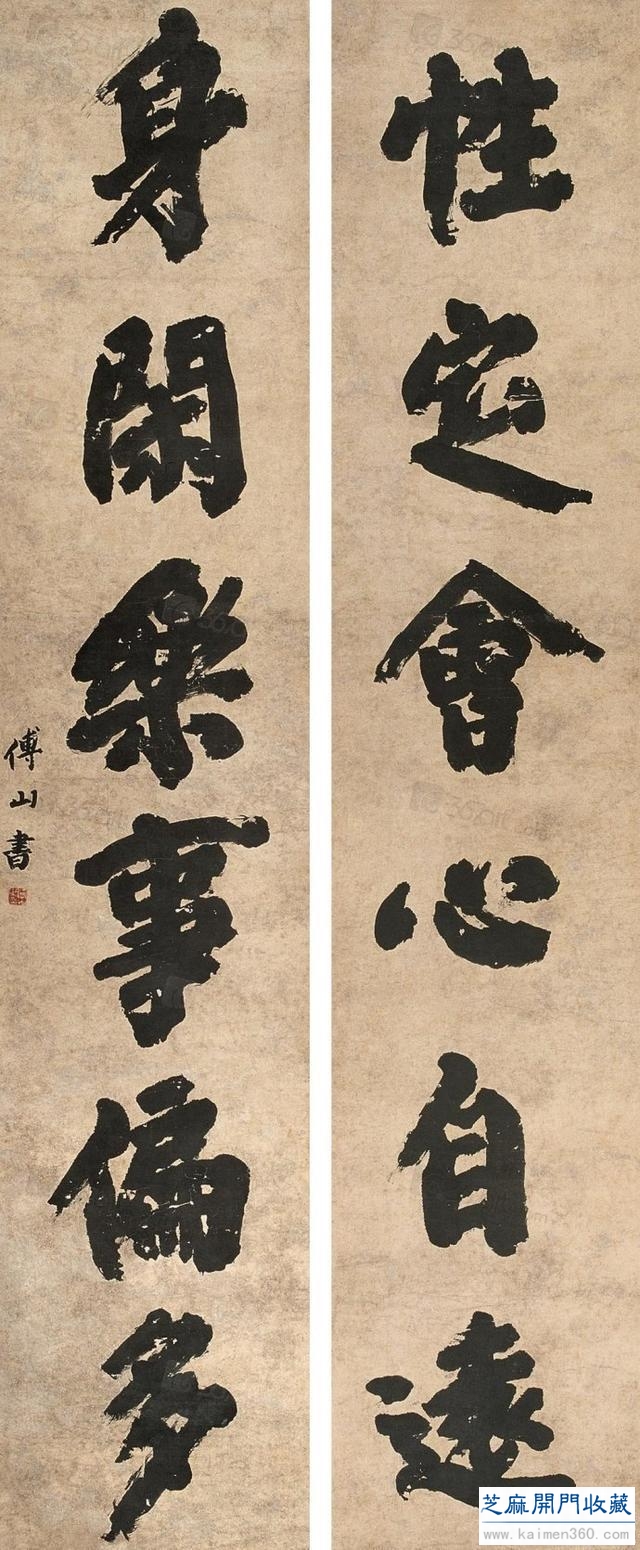 性定會心自遠
身閑樂事偏多
傅山書
芝麻開門收藏
www.kaimen360.com